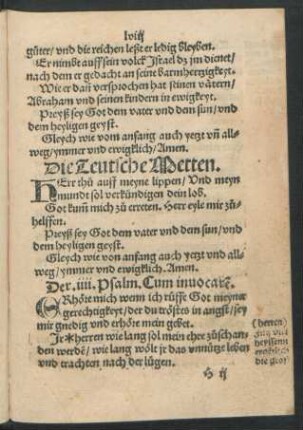 lviij
güter/ vnd die reichen lesst er ledig bleyben.
Er nimbt auff sein volck Israel dz jm dienet/
nach dem er gedacht an seine barmhertzigkeyt.
Wie er dañ versprochen hat seinen vätern/
Abraham vnd seinen kindern in ewigkeyt.
Preyß sey Got dem vater vnd dem sun/ vnd
dem heyligen geyst.
Gleych wie vom anfang auch yetzt vñ all-
weg/ ymmer vnd ewigklich/ Amen.
Die Teutsche Metten.
HErr thů auff meyne lippen/ Vnd meyn
mundt sol verkündigen dein lob.
Got kum̃ mich zů erreten. Herr eyle mir zů-
helffen.
Preyß sey Got dem vater vnd dem sun/ vnd
dem heyligen geyst.
Gleych wie von anfang auch yetzt vnd all-
weg/ ymmer vnd ewigklich. Amen.
Der .iiij. Psalm. Cum inuocarẽ.
ERhört mich wenn ich růffe Got meyner
gerechtigkeyt/ der du tröstes in angst/ sey
mir gnedig vnd erhöre mein gebet.
Jr* herren wie lang sol mein ehre zůschan-
den werdẽ/ wie lang wölt jr das vnnütze lieben
vnd trachten nach der lügen.
(herren)
heyssenn
die gros
H ij